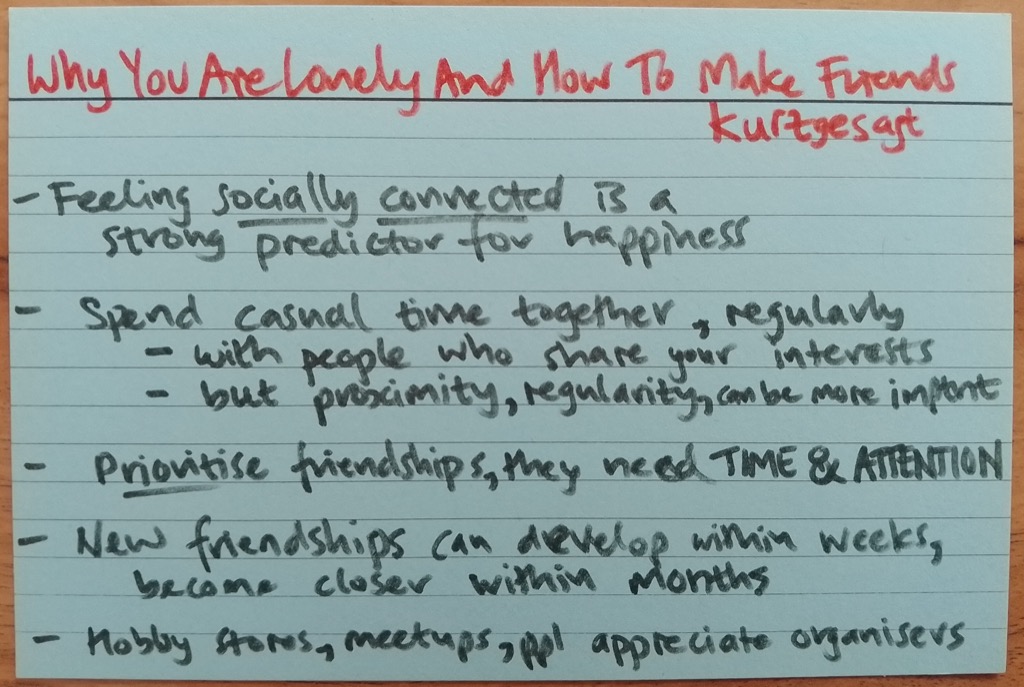 Why You Are Lonely And How To Make Friends
Kurzgesagt
- Feeling socially connected is a
strong predictor for happiness
- Spend casual time together, regularly
- with people who share your interests
- but proximity, regularity, can be more imptnt
- Prioritise friendships, they need TIME & ATTENTION
- New friendships can develop within weeks,
become closer within months
- Hobby stores, meetups, ppl appreciate organisers